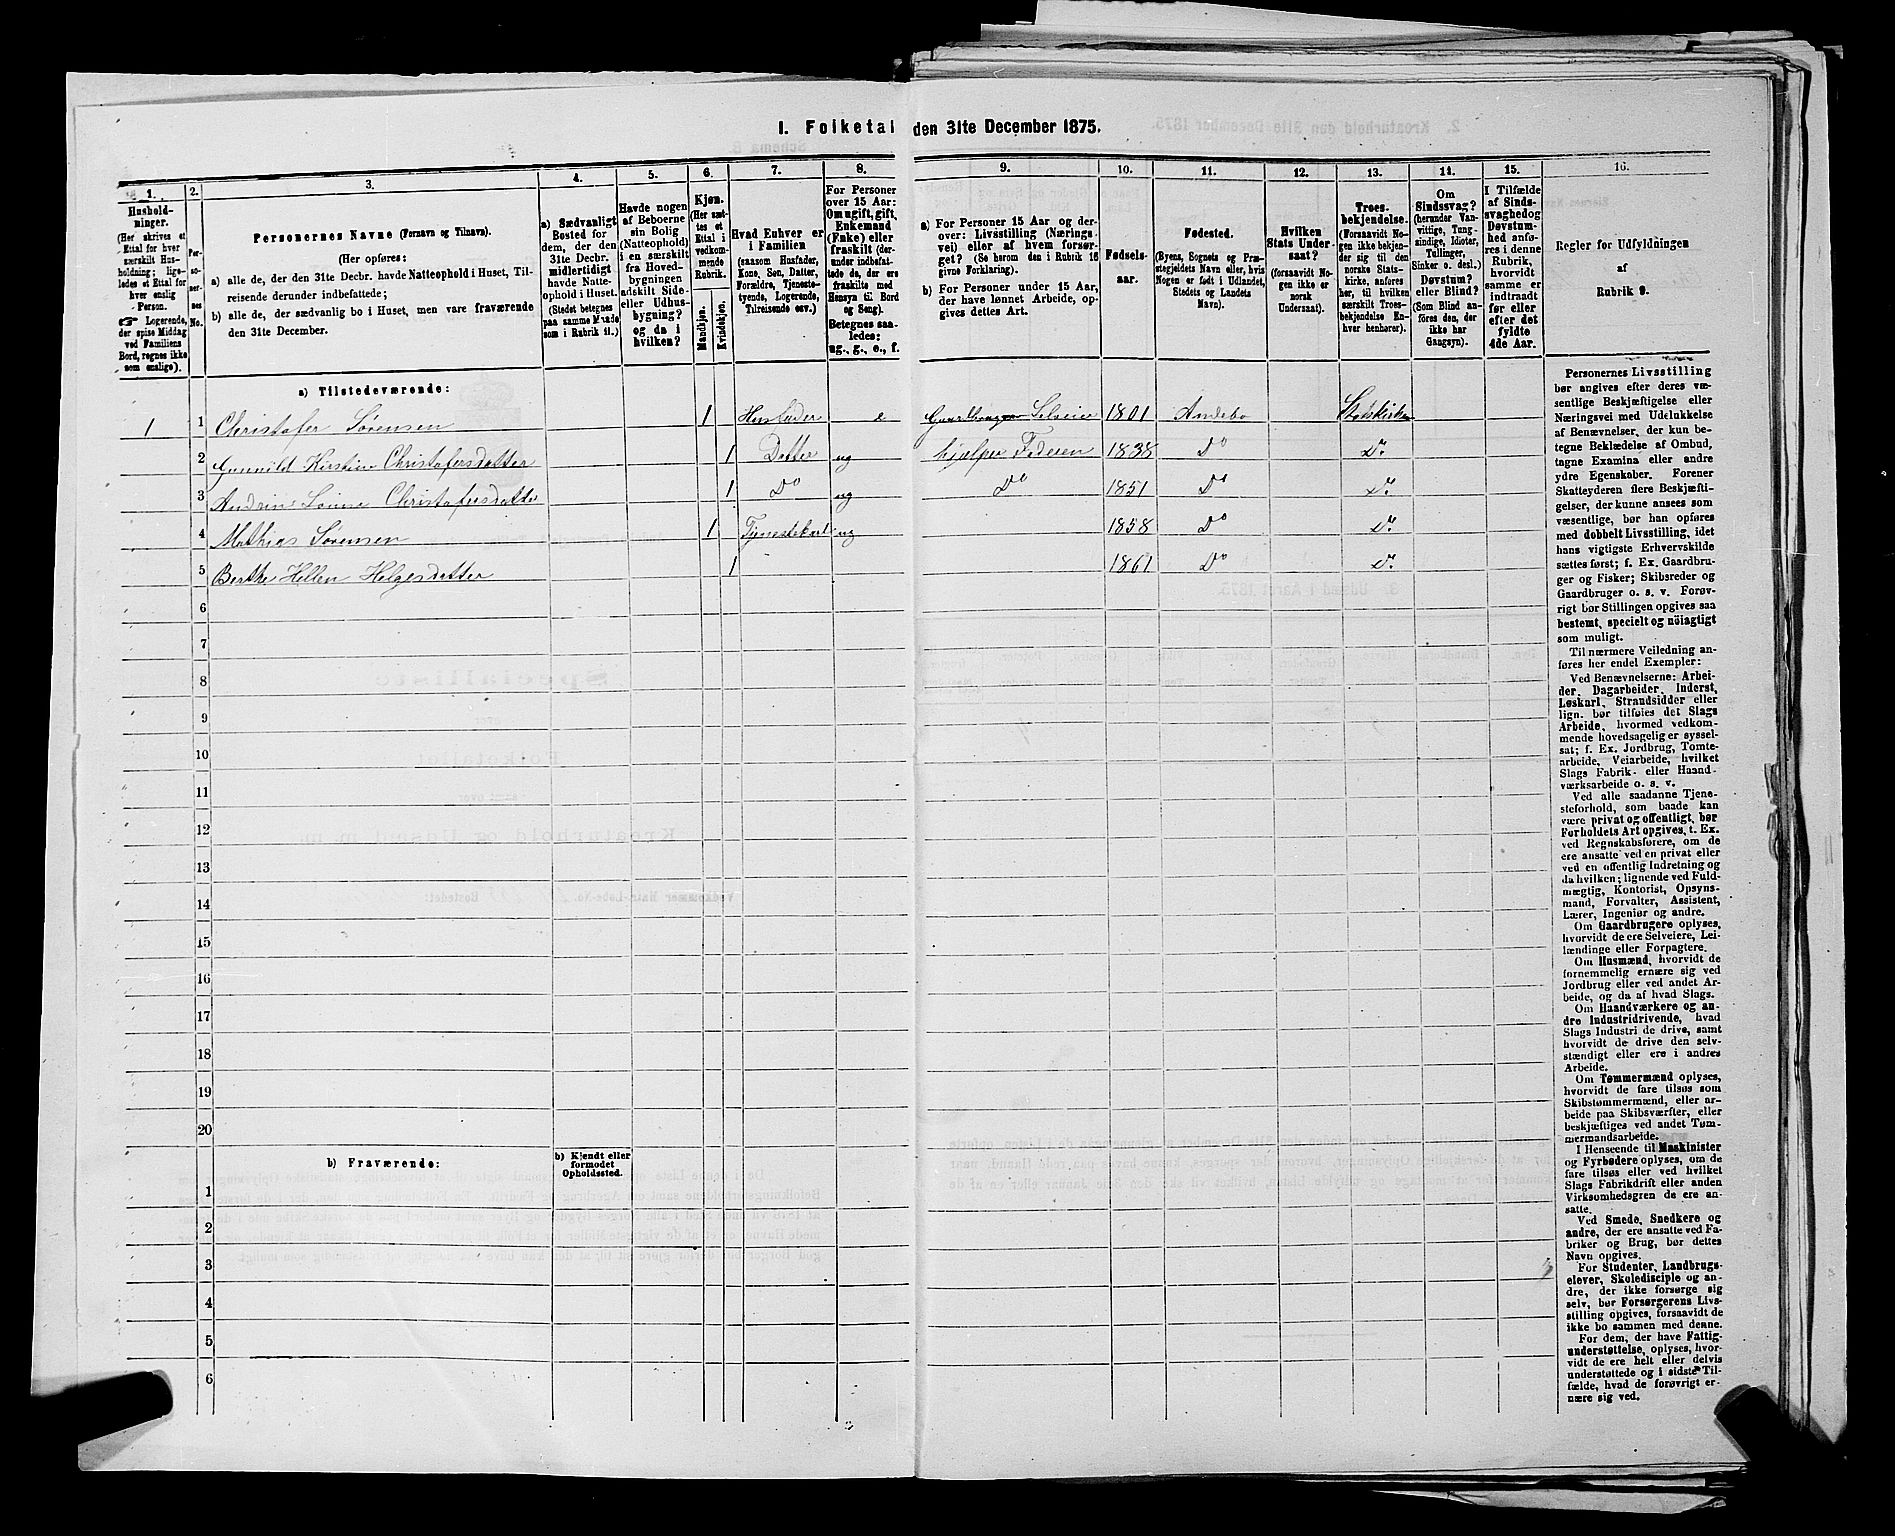 I. Folketal den 31te December 1875.
1.
2.
3.
4.
5.
6.
7.
8.
9.
10.
11.
12.
13.
14.
15.
16.
Husholdninger.
(Her skrives et Ettal for hver særskilt Husholdning; ligeledes et Ettal for hver enslig Person.
☞ Logerende, der spise Middag ved Familiens Bord, regnes ikke som enslige).
Personernes No.
Personernes Navne (Fornavn og Tilnavn).
(Her opføres:
a) alle de, der den 31te Decbr. havde Natteophold i Huset, Tilreisende derunder indbefattede;
b) alle de, der sædvanlig bo i Huset, men vare fraværende den 31te December.
a) Sædvanligt Bosted for dem, der den 31te Decbr. midlertidigt havde Natteophold i Huset. (Stedet betegnes paa samme Maade som i Rubrik 11.)
Havde nogen af Beboerne sin Bolig (Natteophold) i en særskilt fra Hovedbygningen adskilt Side- eller Udhusbygning? og da i hvilken?
Kjøn. (Her sættes et Ettal i vedkommende Rubrik.
Mandkjøn.
Kvindekjøn.
Hvad Enhver er i Familien
(saasom Husfader, Kone, Søn, Datter, Forældre, Tjenestetyende, Logerende, Tilreisende osv.)
For Personer over 15 Aar: Om ugift, gift, Enkemand (Enke) eller fraskilt (derunder indbefattede de, der ere fraskilte med Hensyn til Bord og Seng).
Betegnes saaledes: ug., g., e., f.
a) For Personer 15 Aar og derover: Livsstilling (Næringsvei) eller af hvem forsørget? (Se herom den i Rubrik 16 givne Forklaring).
b) For Personer under 15 Aar, der have lønnet Arbeide, opgives dettes Art.
Fødselsaar.
Fødested.
(Byens, Sognets og Præstegjeldets Navn eller, hvis Nogen er født i Udlandet, Stedets og Landets Navn).
Hvilken Stats Undersaat?
(forsaavidt Nogen ikke er norsk Undersaat).
Troesbekjendelse.
(Forsaavidt Nogen ikke bekjender sig til den norske Statskirke, anføres her, til hvilken særskilt Troesbekjendelse Enhver henhører).
Om Sindssvag? (herunder Vanvittige, Tungsindige, Idioter, Tullinger, Sinker o. desl.) Døvstum? eller Blind? (Som Blind anføres den, der ikke har Gangsyn).
I Tilfælde af Sindssvaghed og Døvstumhed anføres i denne Rubrik, hvorvidt samme er indtraadt før eller efter det fyldte 4de Aar.
Regler for Udfyldningen
af
Rubrik 9.
a) Tilstedeværende:
1 1 Christofer Sørensen 1 Husfader e Gaardbruger Selveier 1801 Andebo Statskirken
2 Gunnild Kirstine Christofersdatter 1 Datter ug hjælper Faderen 1838 Do Do
3 Christofersdatter 1 Do ug Do 1851 Do Do
4 Mathias Sørensen 1 Tjenestekarl ug 1858 Do Do
5 Berthe Hellen Helgesdatter 1 1861 Do Do
6
7
8
9
10
11
12
13
14
15
16
17
18
19
20
b) Fraværende:
b) Kjendt eller formodet Opholdssted.
1
2
3
4
5
6
Personernes Livsstilling
bør angives efter deres væ-
sentlige Beskjæftigelse eller
Næringsvei med Udelukkelse
af Benævnelser, der kun be-
tegne Beklædelse af Ombud,
tagne Examina eller andre
ydre Egenskaber. Forener
Skatteyderen flere Beskjæfti-
gelser, der kunne ansees som
væsentlige, bør han opføres
med dobbelt Livsstilling, idet
hans vigtigste Erhvervskilde
sættes først; f. Ex. Gaardbru-
ger og Fisker; Skibsreder og
Gaardbruger o. s. v. Forøv-
rigt bør Stillingen opgives saa
bestemt, specielt og nöiagtigt
som muligt.
Til nærmere Veiledning an-
føres her endel Exempler:
Ved Benævnelserne: Arbei-
der, Dagarbeider, Inderst,
Løskarl, Strandsidder eller
lign. bør tilføies det Slags
Arbeide, hvormed vedkom-
mende hovedsagelig er syssel-
sat; f. Ex. Jordbrug, Tomte-
arbeide, Veiarbeide, hvilket
Slags Fabrik- eller Haand-
værksarbeide o. s. v.
Ved alle saadanne Tjene-
steforhold, som baade kan
være privat og offentligt, bør
Forholdets Art opgives, t. Ex.
ved Regnskabsførere, om de
ere ansatte ved en privat eller
ved en offentlig Indretning og
da hvilken; lignende ved Fuld-
mægtig, Kontorist, Opsyns-
mand, Forvalter, Assistent,
Lærer, Ingeniør og andre.
Om Gaardbrugere oplyses,
hvorvidt de ere Selveiere, Lei-
lændinge eller Forpagtere.
Om Husmænd, hvorvidt de
fornemmelig ernære sig ved
Jordbrug eller ved andet Ar-
beide, og da af hvad Slags.
Om Haandværkere og an-
dre Industridrivende, hvad
Slags Industri de drive, samt
hvorvidt de drive den selv-
stændigt eller ere i andres
Arbeide.
Om Tømmermænd oplyses,
hvorvidt de fare tilsøs som
Skibstømmermænd, eller ar-
beide paa Skibsværfter, eller
beskjæftiges ved andet Tøm-
mermandsarbeide.
I Henseende til Maskinister
og Fyrbødere oplyses, om de
fare tilsøs eller ved hvilket
Slags Fabrikdrift eller anden
Virksomhedsgren de ere an-
satte.
Ved Smede, Snedkere og
andre, der ere ansatte ved Fa-
briker og Brug, bør dettes
Navn opgives.
For Studenter, Landbrugs-
elever, Skoledisciple og an-
dre, der ikke forsørge sig
selv, bør Forsørgerens Livs-
stilling opgives, forsaavidt de
ikke bo sammen med denne.
For dem, der have Fattig-
understøttelse, oplyses, hvor-
vidt de ere helt eller delvis
understøttede og i sidste Til-
fælde, hvad de forøvrigt er-
nære sig ved.